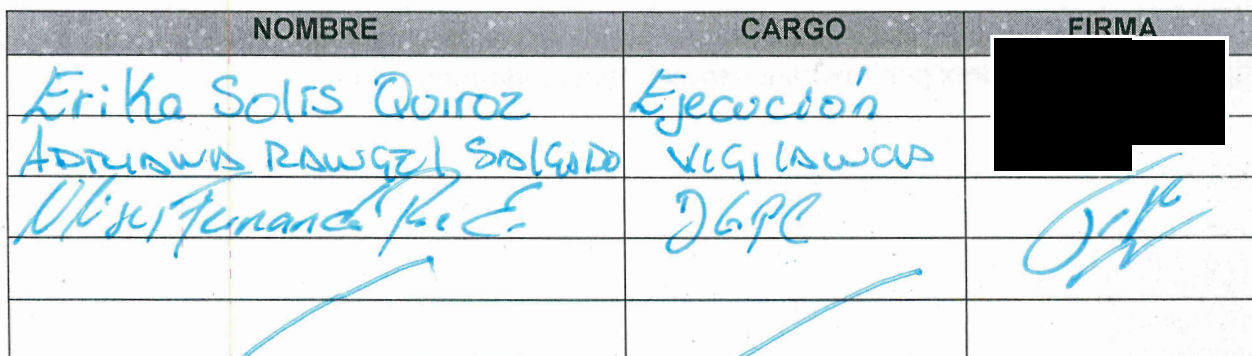 NOMBRE CARGO FIRMA
Erika Solis Quiroz Ejecución
ADRIANA RANGEL SALGADO VIGILANCIA
Ulises Fernand DGPC